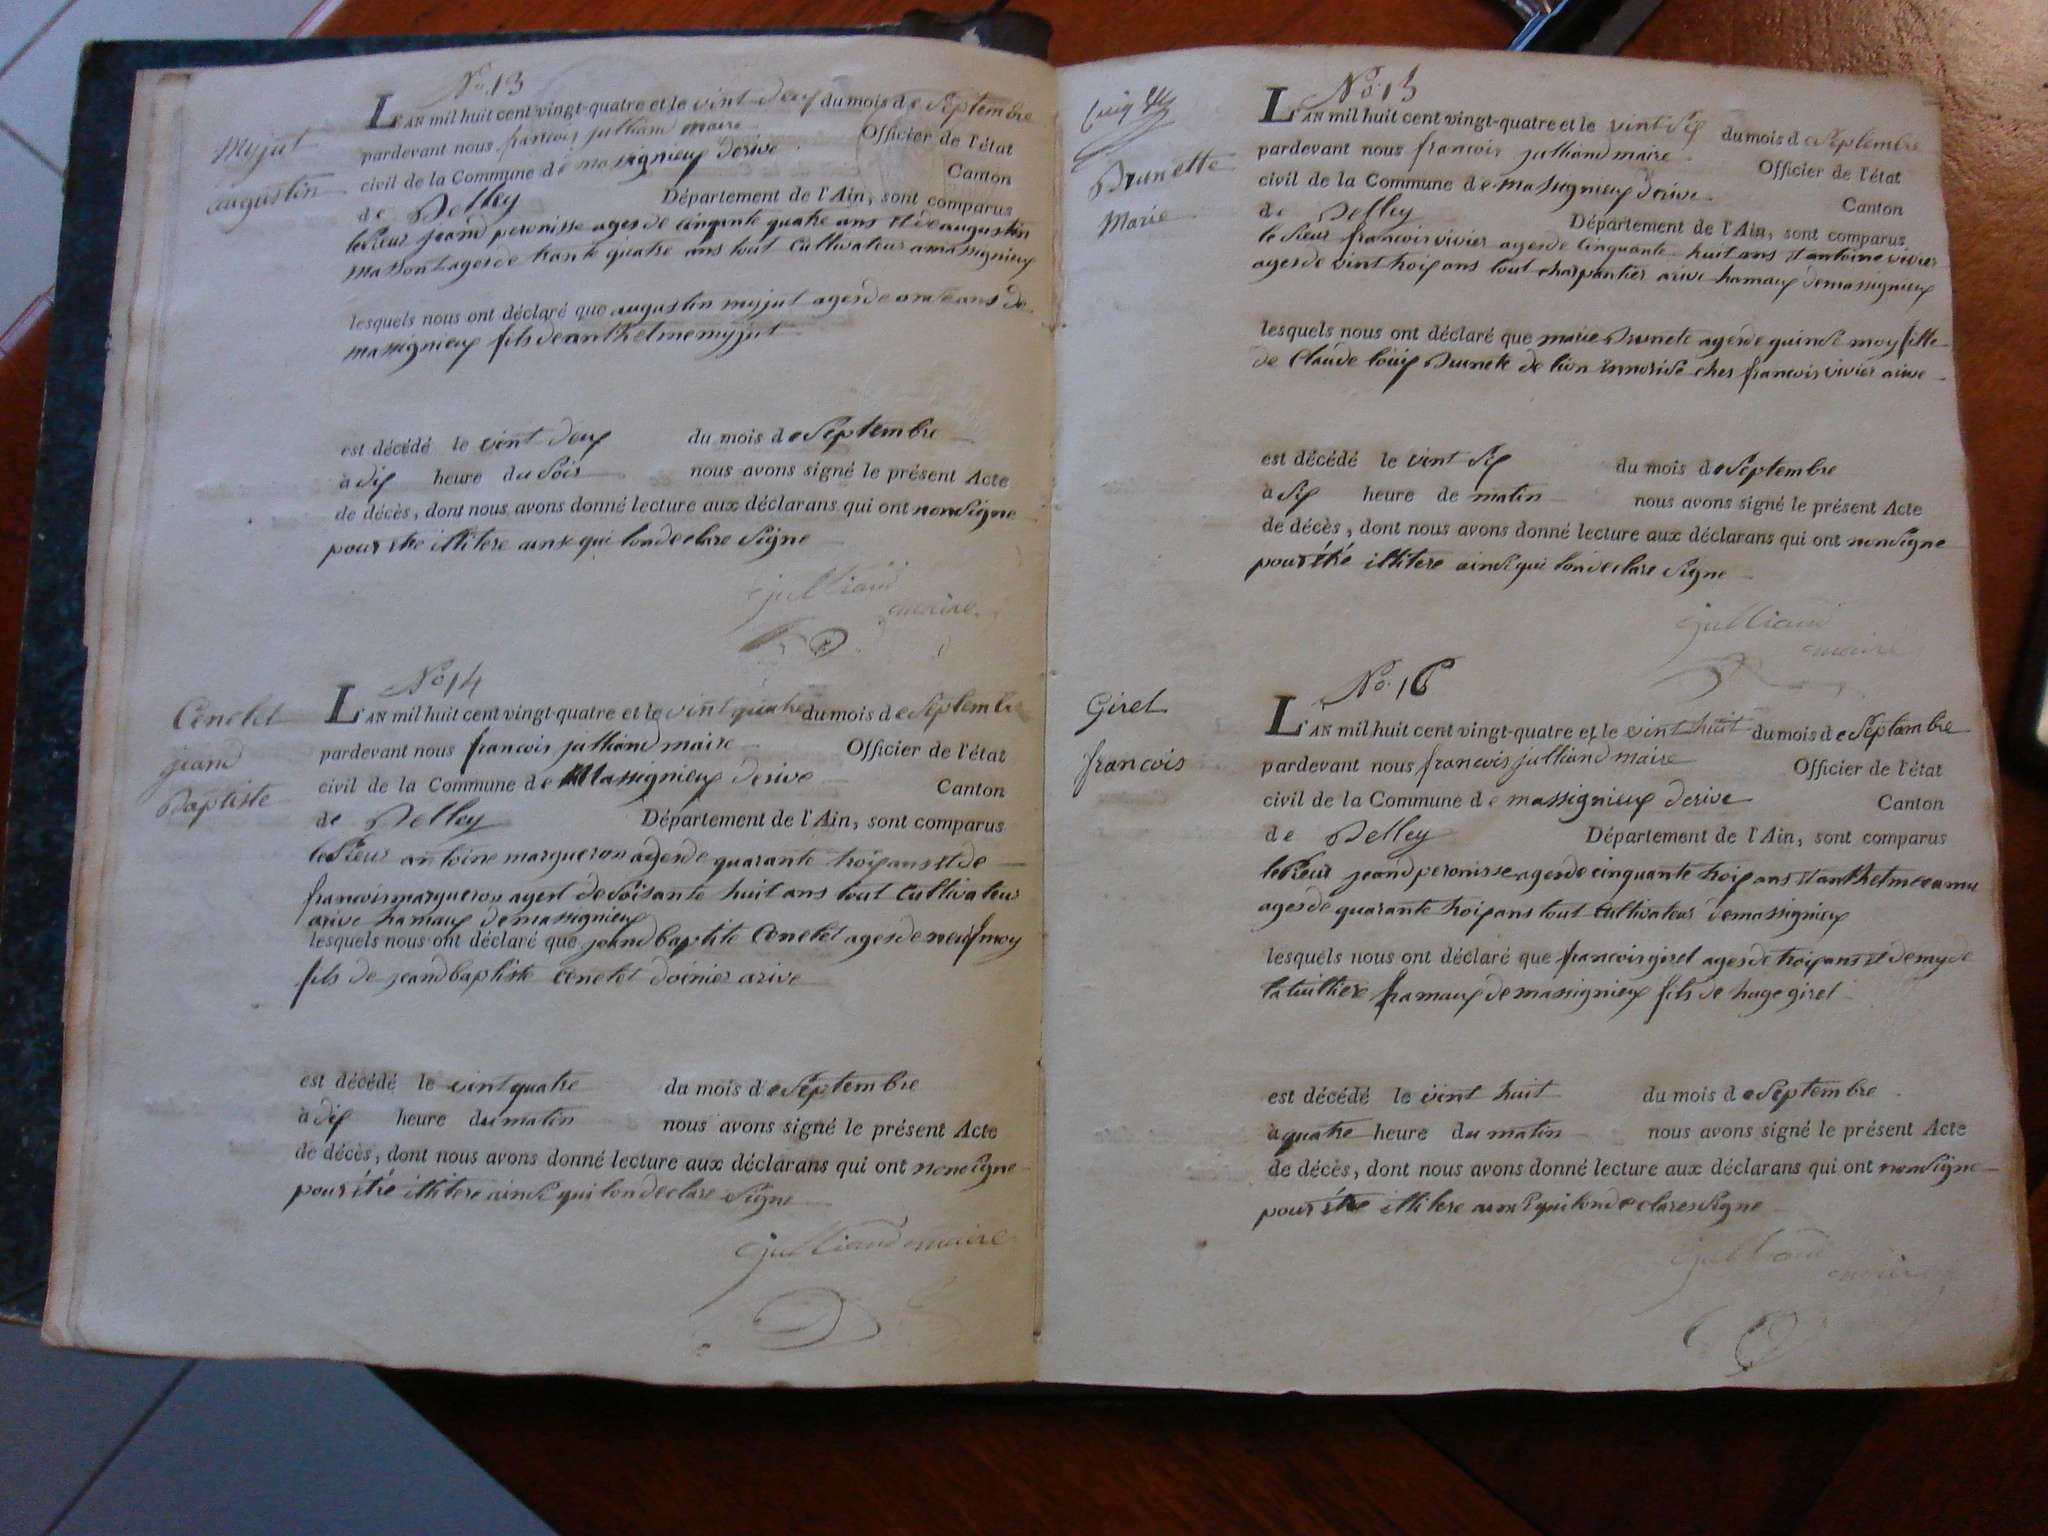 No. 13
Myjut
augustin
L'AN mil huit cent vingt-quatre et le vint deux du mois de Septembre
pardevant nous francois julliand maire Officier de l'état
civil de la Commune de massignieux derive Canton
de Belley Département de l'Ain, sont comparus
le sieur jeand peronisse agesde cinqante quatre ans et de augustin
massont agesde trante quatre ans tout cultivateur a massignieux
lesquels nous ont déclaré que augustin myjut agesde onze ans de
massignieux fils de anthelme myjut
est décédé le vint deux du mois de Septembre
à dix heure du Soir nous avons signé le présent Acte
de décès, dont nous avons donné lecture aux déclarans qui ont non Signe
pour etre illitere ainse qui lon declare Signe
julliand
maire
No. 14
Cenelet
jeand
Baptiste
L'AN mil huit cent vingt-quatre et le vint quatre du mois de Septembre
pardevant nous francois julliand maire Officier de l'état
civil de la Commune de Massignieux derive Canton
de Belley Département de l'Ain, sont comparus
le Sieur antoine margueron agesde quarante troix ans et de
francois margueron agest de Soisante huit ans tout Cultivateur
arive hamaux de massignieux
lesquels nous ont déclaré que jeand baptite Cenelet agesde neuf moy
fils de jeand baptiste Cenelet doinier arive
est décédé le vint quatre du mois de Septembre
à dix heure du matin nous avons signé le présent Acte
de décès, dont nous avons donné lecture aux déclarans qui ont non Signe
pour étré illitere ainsi qui lon declare Signe
julliand maire
No. 15
Brunette
Marie
L'AN mil huit cent vingt-quatre et le vint Six du mois de Septembre
pardevant nous francois julliand maire Officier de l'état
civil de la Commune de massignieux derive Canton
de Belley Département de l'Ain, sont comparus
le Sieur francois vivier agesde Cinquante huit ans et antoine vivier
agesde vint troix ans tout charpantier arive hamaux de massignieux
lesquels nous ont déclaré que marie Brunete agesde quinse moy fille
de Claude louix Brunete de lion chez francois vivier arive
est décédé le vint Six du mois de Septembre
à Six heure de matin nous avons signé le présent Acte
de décès, dont nous avons donné lecture aux déclarans qui ont non Signe
pour étré illitere ainsi qui lon declare Signe
julliand
maire
No. 16
Girel
francois
L'AN mil huit cent vingt-quatre et le vint huit du mois de Septembre
pardevant nous francois julliand maire Officier de l'état
civil de la Commune de massignieux derive Canton
de Belley Département de l'Ain, sont comparus
le Sieur jeand peronisse agesde cinquante troix ans et anthelme camu
agesde quarante troix ans tout Cultivateur de massignieux
lesquels nous ont déclaré que francois girel agesde troix ans et demy de
la tuilliere hamaux de massignieux fils de huge girel
est décédé le vint huit du mois de Septembre
à quatre heure du matin nous avons signé le présent Acte
de décès, dont nous avons donné lecture aux déclarans qui ont non Signe
pour étre illitere ainsi qui lon declare Signe
julliand
maire